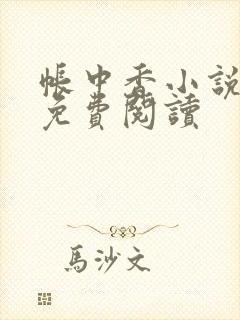 帳中香小說
免費閱讀
馬沙文